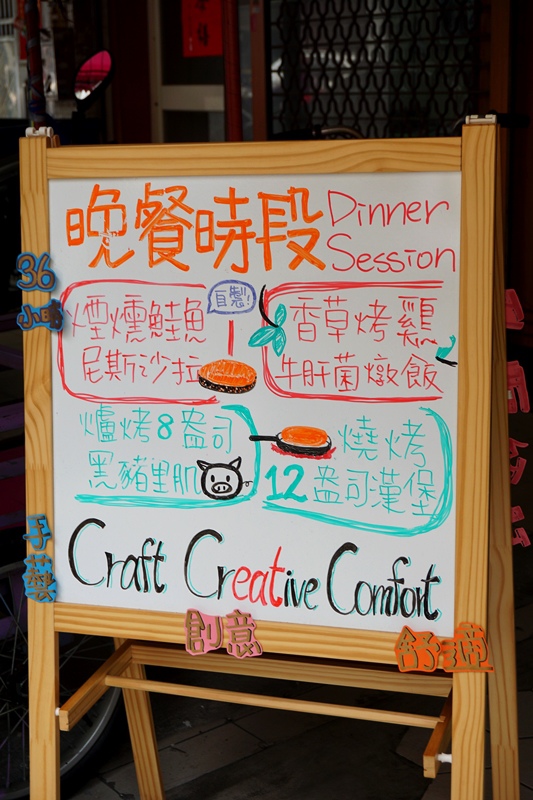 晚餐時段
Dinner
Session
自製!
煙燻鮭魚
尼斯沙拉
香草烤雞
牛肝菌燉飯
爐烤8盎司
黑豬里肌
燒烤
12盎司漢堡
Craft Creative Comfort
36
小時
手藝
創意
舒適